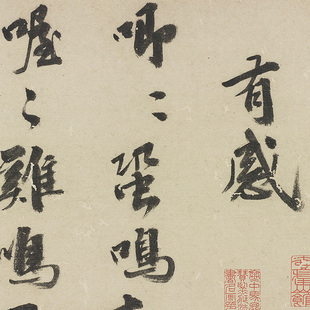 有感
唧〻蛩鳴
喔〻雞鳴